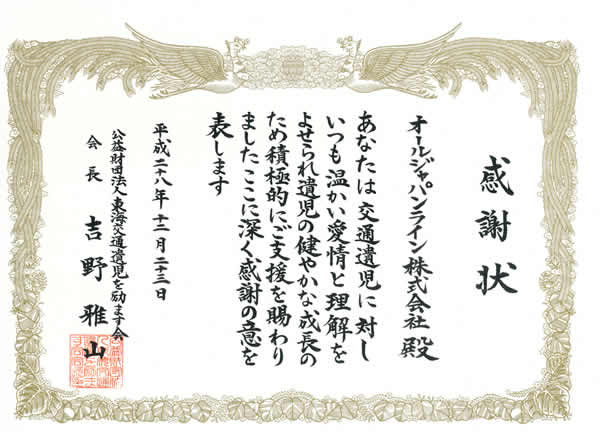 感謝状
オールジャパンライン株式会社 殿
あなたは交通遺児に対し
いつも温かい愛情と理解を
よせられ遺児の健やかな成長の
ため積極的にご支援を賜わり
ました ここに深く感謝の意を
表します
平成二八年十二月二十三日
公益財団法人東海交通遺児を励ます会
会長 吉野雅山